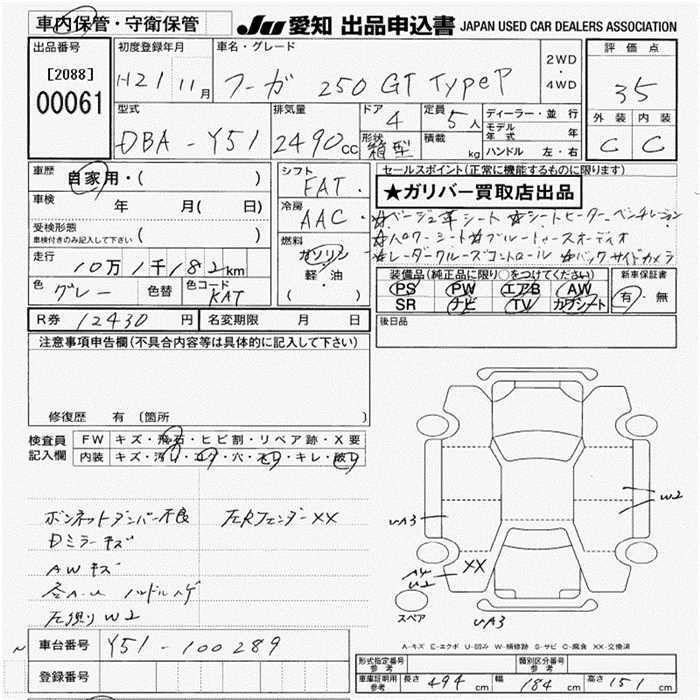 車内保管・守衛保管
JU 愛知 出品申込書 JAPAN USED CAR DEALERS ASSOCIATION
出品番号
[2088]
00061
初度登録年月
H21 11月
車名・グレード
フーガ 250 GT TypeP
2WD
・
4WD
評価点
35
外装 内装
C C
型式
DBA-Y51
排気量
2490cc
ドア
4
形状
箱型
定員
5人
積載
kg
ディーラー・並行
モデル年式 年
ハンドル 左・右
車歴
自家用・( )
車検
年 月( 日)
受検形態
車検付きのみ記入して下さい ( )
走行
10万1千182km
色
グレー
色替
色コード
KAT
シフト
FAT・
冷房
AAC・
燃料
ガソリン
軽・油
( )
セールスポイント(正常に機能するものに限ります)
★ガリバー買取店出品
☆ベージュ革シート ☆シートヒーター ベンチレーション
☆パワーシート☆ブルートゥースオーディオ
☆レーダークルーズコントロール ☆バックサイドカメラ
装備品(純正品に限り○をつけてください)
PS PW エアB AW
SR ナビ TV カワシート
新車保証書
有・無
R券 12430円
名変期限 月 日
後日品
注意事項申告欄(不具合内容等は具体的に記入して下さい)
修復歴 有(箇所 )
検査員記入欄
FW キズ・飛石・ヒビ割・リペア跡・X要
内装 キズ・汚レ・コゲ・穴・スレ・キレ・破レ
ボンネットダンパー不良
左Rフェンダー XX
Dミラーキズ
AWキズ
ハンドルハゲ
W2
UA3
W2
XX
A4
U2
UA3
スペア
A-キズ E-エクボ U-凹み W-補修跡 S-サビ C-腐食 XX-交換済
車台番号 Y51-100289
登録番号
形式指定番号
参考
類別区分番号
参考
車庫証明用
参考
長さ 494cm
幅 184cm
高さ 151cm